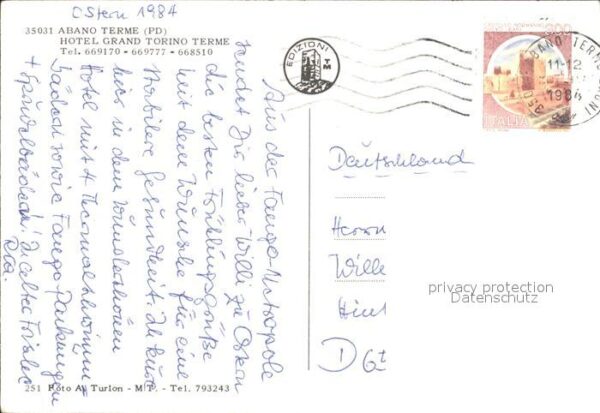 Ostern 1984
35031 ABANO TERME (PD)
HOTEL GRAND TORINO TERME
Tel. 669170 - 669777 - 668510
EDIZIONI
TM
ABANO TERME
11-12
1984
ITALIA
Aus der Fango-Metropole
sendet Dir lieber Willi zu Ostern
die besten Frühlingsgrüße
mit dem Wunsche für eine
stabilere Gesundheit. Zu Kur
hier in dem wunderschönen
Hotel mit 4 Thermalschwimm-
bädern sowie Fango-Packungen
+ Sprudelbädern!
Deutschland
Herrn
Wille
D 6
privacy protection
Datenschutz
251 Foto A. Turlon - M.P. - Tel. 793243